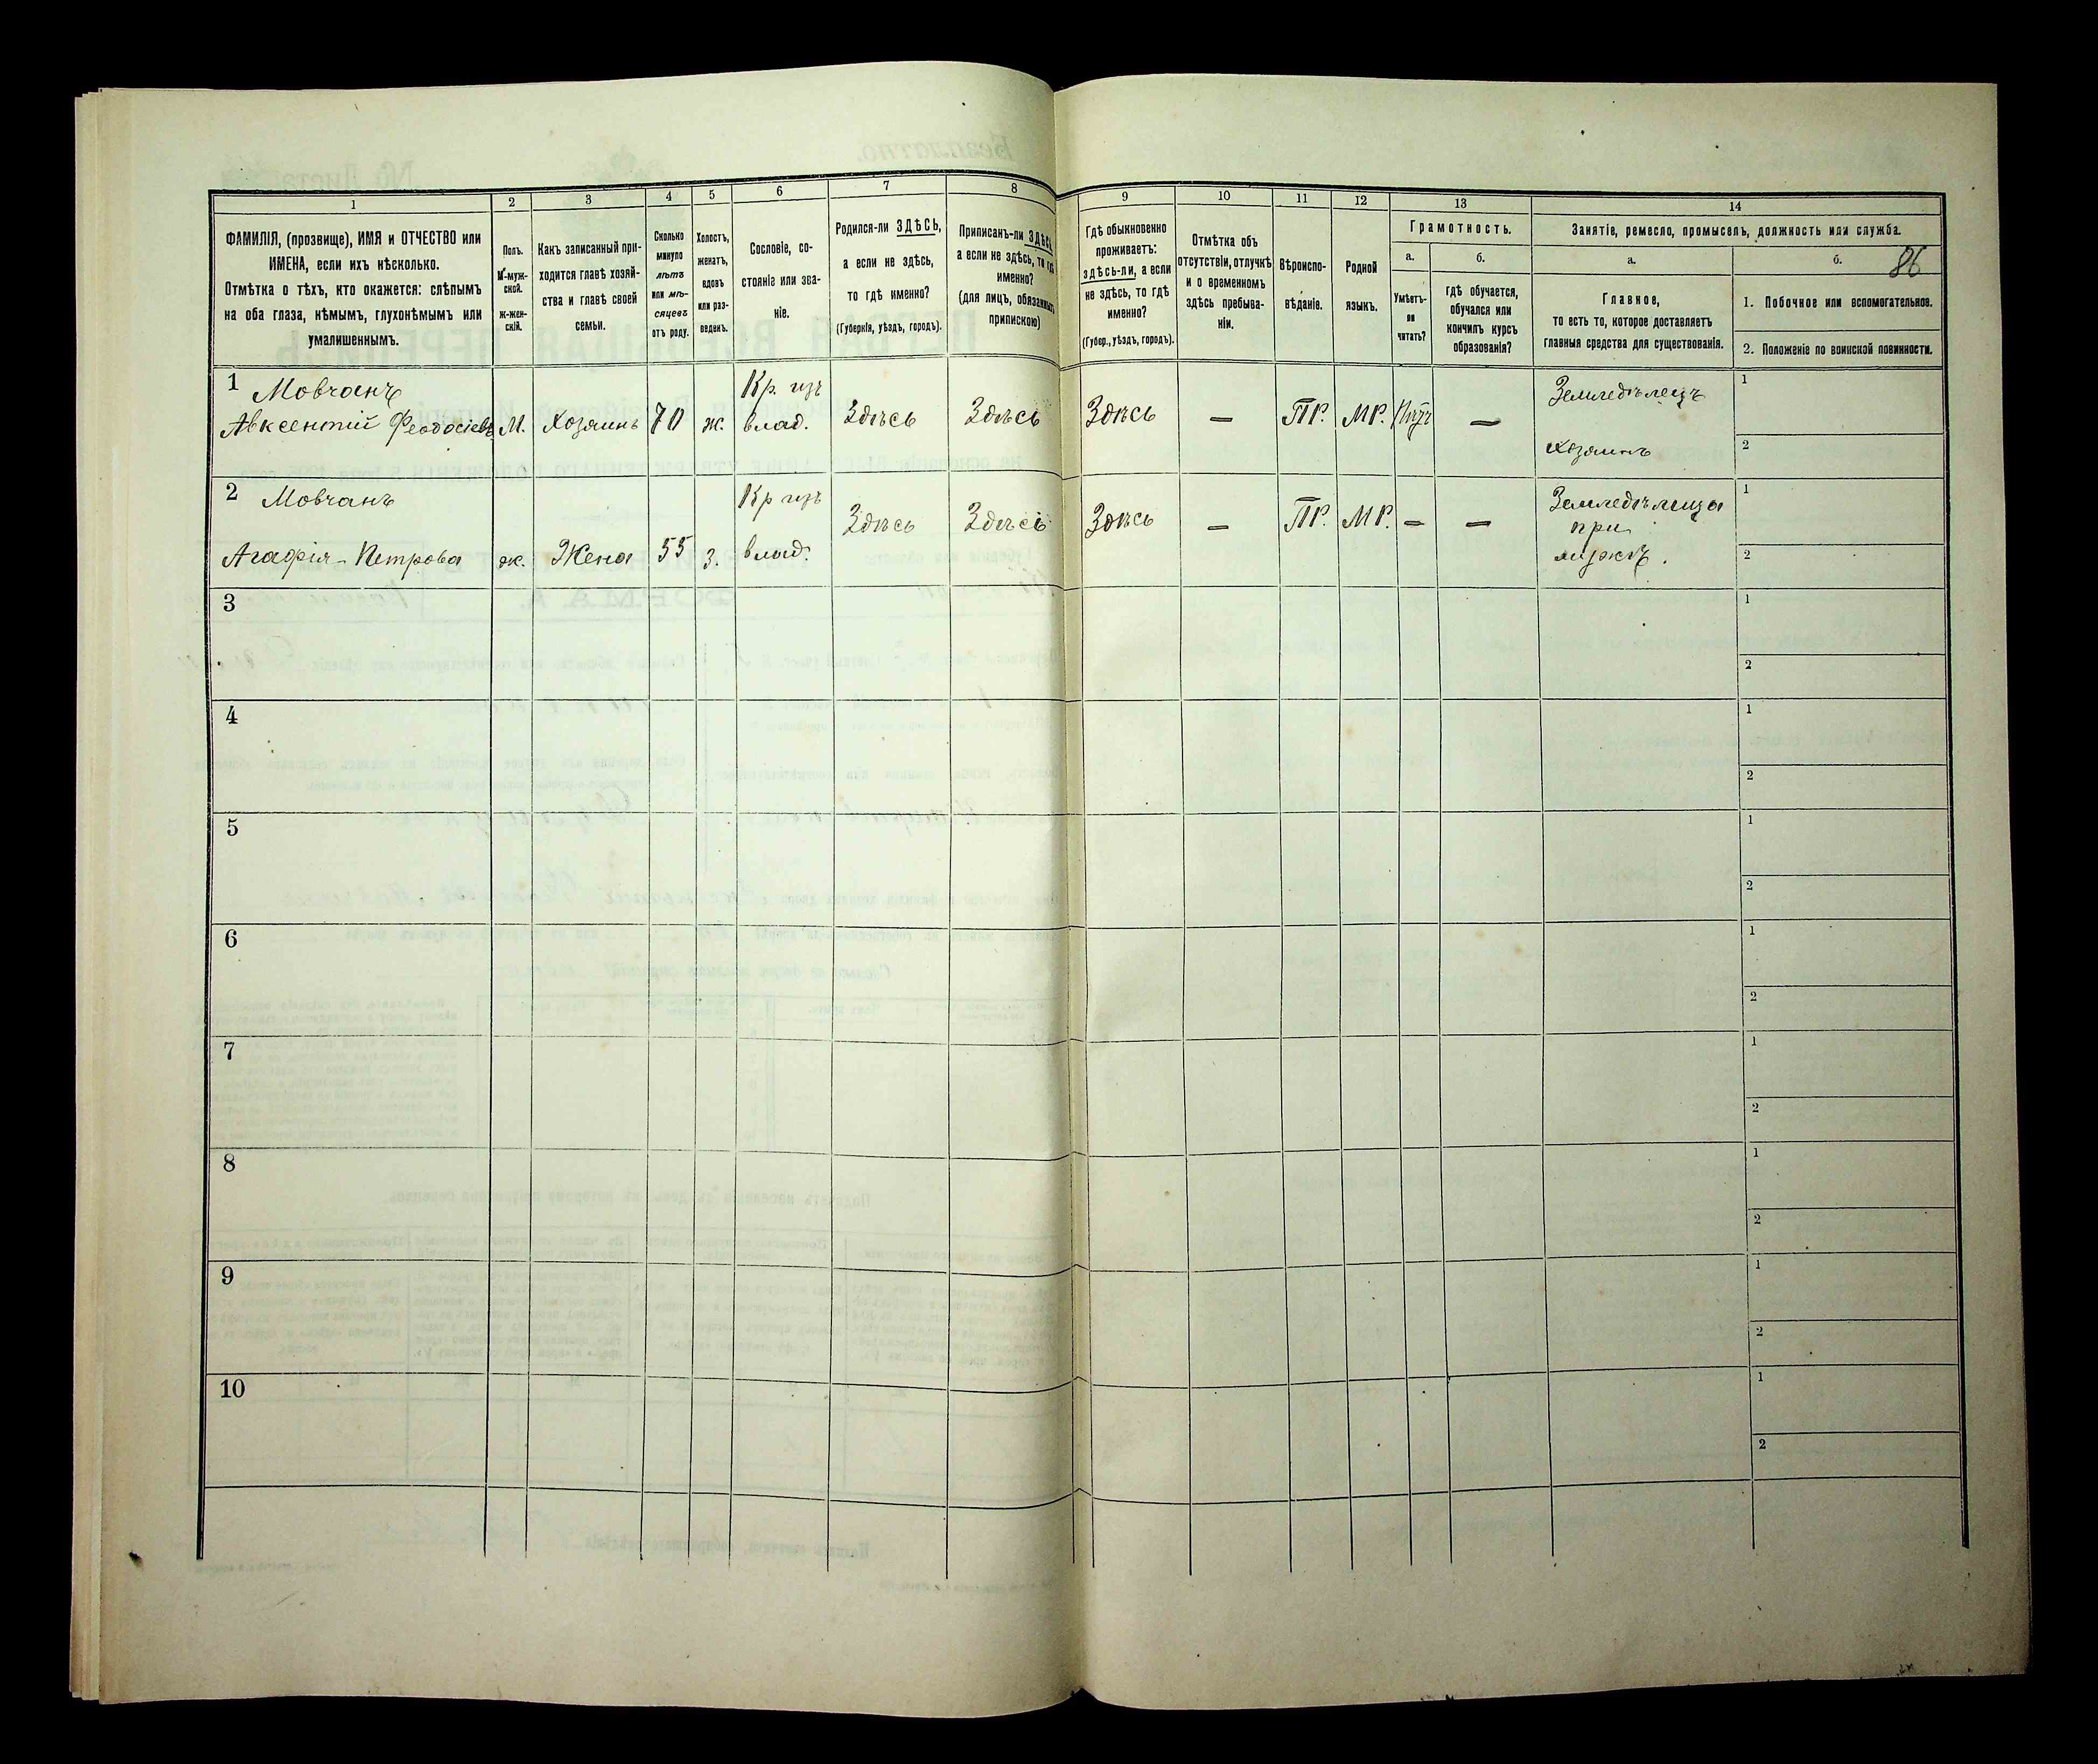 1 2 3 4 5 6 7 8 9 10 11 12 13 14
ФАМИЛІЯ, (прозвище), ИМЯ и ОТЧЕСТВО или
ИМЕНА, если ихъ нѣсколько.
Отмѣтка о тѣхъ, кто окажется: слѣпымъ
на оба глаза, нѣмымъ, глухонѣмымъ или
умалишеннымъ.
Полъ.
М-муж-
ской.
ж-жен-
скій.
Какъ записанный при-
ходится главѣ хозяй-
ства и главѣ своей
семьи.
Сколько
минуло
лѣтъ
или мѣ-
сяцевъ
отъ роду.
Холостъ,
женатъ,
вдовъ
или раз-
веденъ.
Сословіе, со-
стояніе или зва-
ніе.
Родился-ли ЗДѢСЬ,
а если не здѣсь,
то гдѣ именно?
(Губернія, уѣздъ, городъ).
Приписанъ-ли ЗДѢСЬ,
а если не здѣсь, то гдѣ
именно?
(для лицъ, обязанныхъ
припискою)
Гдѣ обыкновенно
проживаетъ:
здѣсь-ли, а если
не здѣсь, то гдѣ
именно?
(Губер., уѣздъ, городъ).
Отмѣтка объ
отсутствіи, отлучкѣ
и о временномъ
здѣсь пребыва-
ніи.
Вѣроиспо-
вѣданіе.
Родной
языкъ.
Грамотность.
а.
Умѣетъ-
ли
читать?
б.
гдѣ обучается,
обучался или
кончилъ курсъ
образованія?
Занятіе, ремесло, промыселъ, должность или служба.
а.
Главное,
то есть то, которое доставляетъ
главныя средства для существованія.
б.
86
1. Побочное или вспомогательное.
2. Положеніе по воинской повинности.
1 Мовчанъ
Авксентій Ѳеодосіевъ М. Хозяинъ 70 ж. Кр. изъ влад. Здѣсь Здѣсь Здѣсь — ПР. МР. нѣтъ — Земледѣлецъ
хозяинъ
1
2
2 Мовчанъ
Агафія Петрова ж. Жена 55 з. Кр изъ влад. Здѣсь Здѣсь Здѣсь — ПР. МР. — — Земледѣлица
при
мужѣ.
1
2
3
1
2
4
1
2
5
1
2
6
1
2
7
1
2
8
1
2
9
1
2
10
1
2